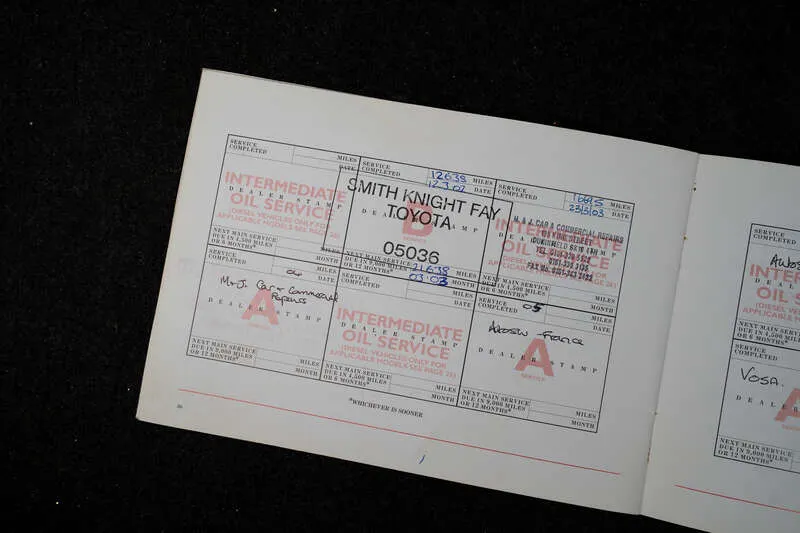 SERVICE COMPLETED
MILES
DATE
INTERMEDIATE
DEALER STAMP
OIL SERVICE
(DIESEL VEHICLES ONLY FOR
APPLICABLE MODELS SEE PAGE 25)
NEXT MAIN SERVICE
DUE IN 4,500 MILES
OR 6 MONTHS*
MILES
MONTH
SERVICE COMPLETED
12638 MILES
12.3.02 DATE
SMITH KNIGHT FAY
TOYOTA
05036
B
DEALER STAMP
SERVICE
NEXT MAIN SERVICE
DUE IN 9,000 MILES
OR 12 MONTHS*
21638 MILES
03.03 MONTH
SERVICE COMPLETED
MILES
23/3/03 DATE
CAR & COMMERCIAL REPAIRS
INTERMEDIATE
DEALER STAMP
OIL SERVICE
(DIESEL VEHICLES ONLY FOR
APPLICABLE MODELS SEE PAGE 25)
NEXT MAIN SERVICE
DUE IN 4,500 MILES
OR 6 MONTHS*
MILES
MONTH
SERVICE COMPLETED
04
MILES
DATE
M+J. Car + Commercial
Repairs
A
DEALER STAMP
NEXT MAIN SERVICE
DUE IN 9,000 MILES
OR 12 MONTHS*
MILES
MONTH
SERVICE COMPLETED
INTERMEDIATE
DEALER STAMP
OIL SERVICE
(DIESEL VEHICLES ONLY FOR
APPLICABLE MODELS SEE PAGE 25)
NEXT MAIN SERVICE
DUE IN 4,500 MILES
OR 6 MONTHS*
MILES
MONTH
SERVICE COMPLETED
05
MILES
DATE
France
A
DEALER STAMP
SERVICE
NEXT MAIN SERVICE
DUE IN 9,000 MILES
OR 12 MONTHS*
MILES
MONTH
*WHICHEVER IS SOONER
SERVICE COMPLETED
INTERMEDIATE
DEALER
OIL SER
(DIESEL VEHICLES
APPLICABLE MODELS
NEXT MAIN SERVICE
DUE IN 4,500 MILES
OR 6 MONTHS*
SERVICE COMPLETED
VOSA.
A
DEALER
SERVICE
NEXT MAIN SERVICE
DUE IN 9,000 MILES
OR 12 MONTHS*